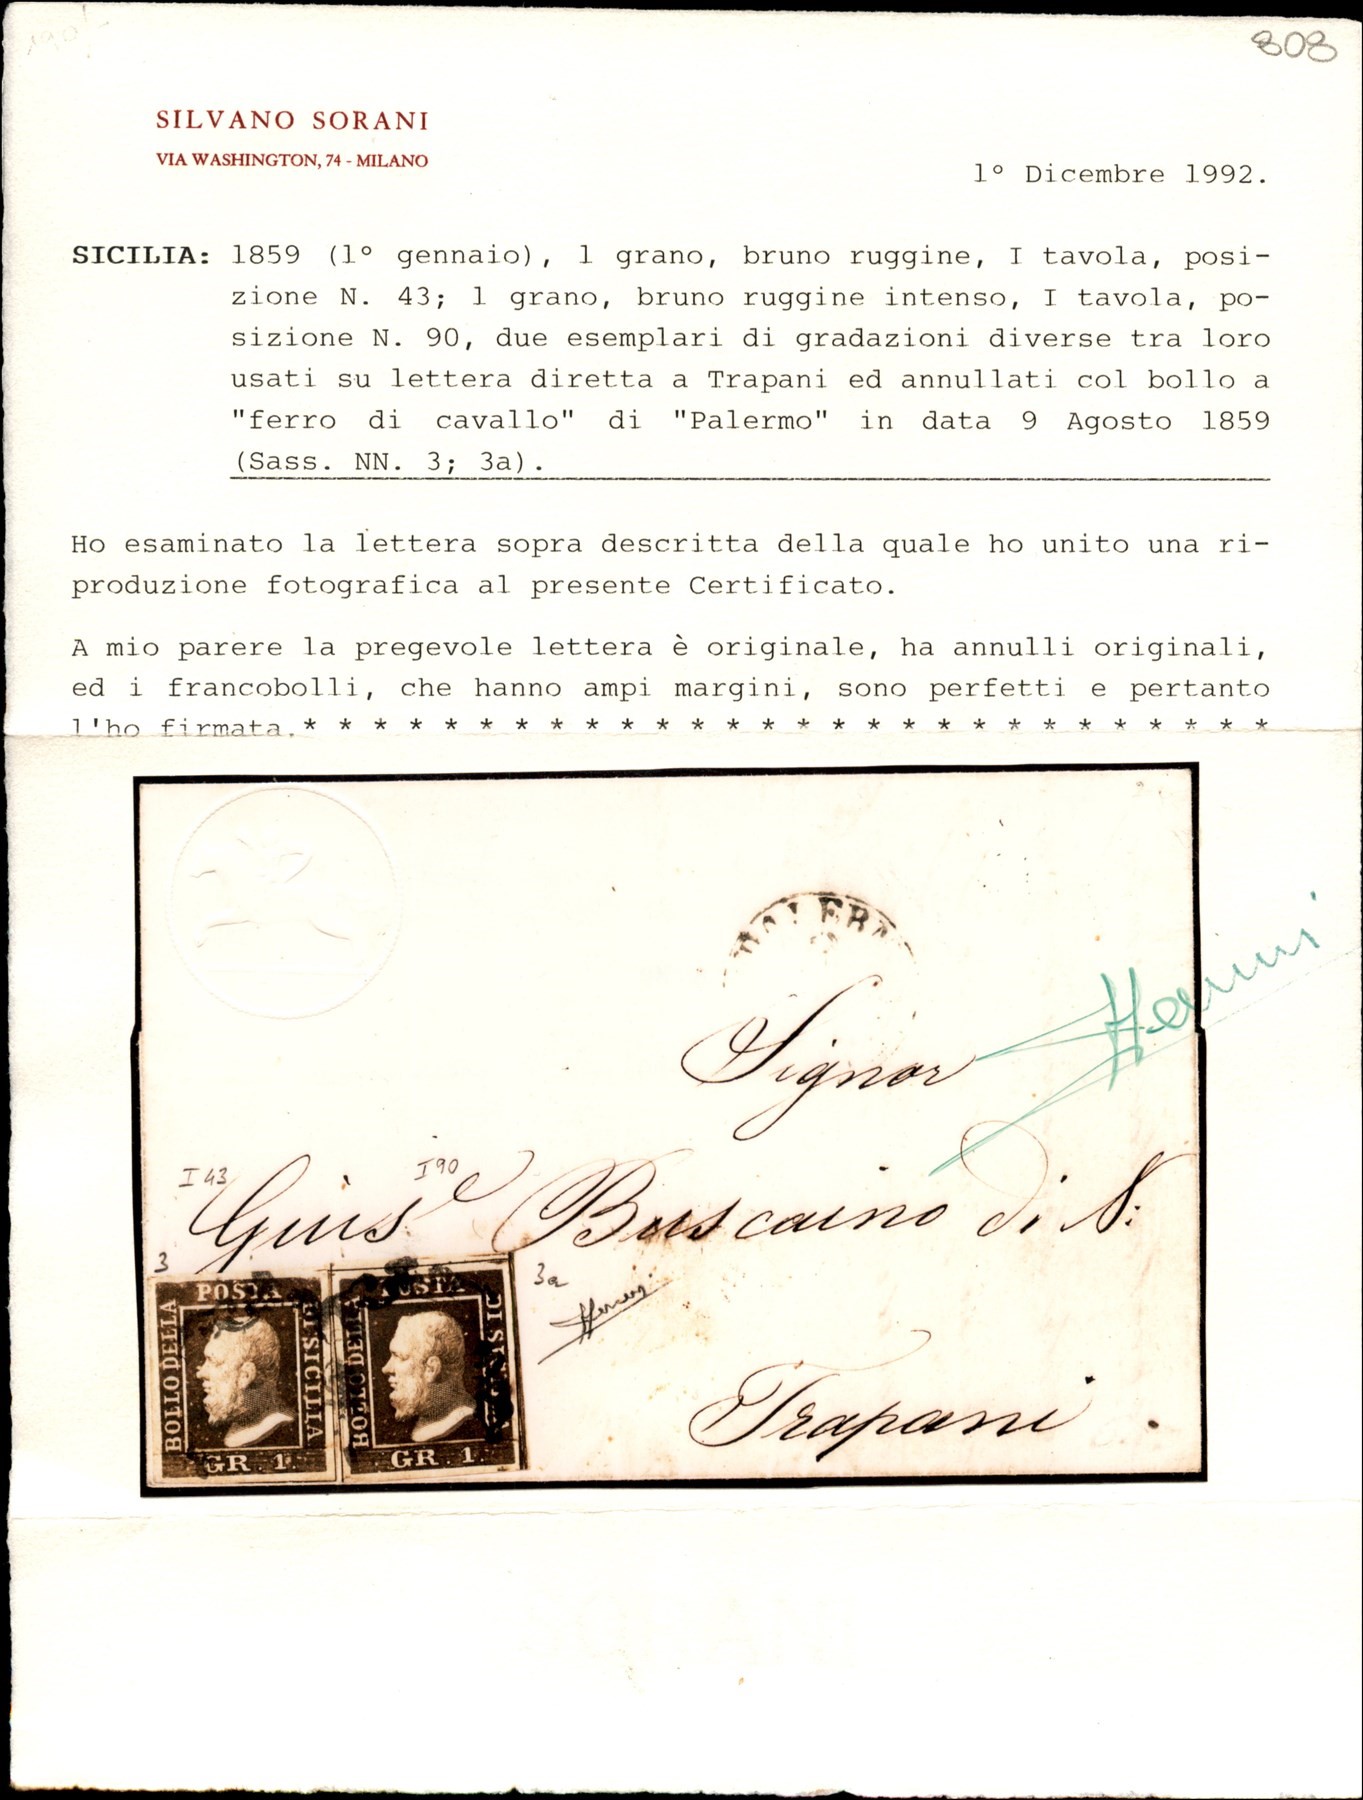 808
SILVANO SORANI
VIA WASHINGTON, 74 - MILANO
1° Dicembre 1992.
SICILIA: 1859 (1° gennaio), 1 grano, bruno ruggine, I tavola, posi-
zione N. 43; 1 grano, bruno ruggine intenso, I tavola, po-
sizione N. 90, due esemplari di gradazioni diverse tra loro
usati su lettera diretta a Trapani ed annullati col bollo a
"ferro di cavallo" di "Palermo" in data 9 Agosto 1859
(Sass. NN. 3; 3a).
Ho esaminato la lettera sopra descritta della quale ho unito una ri-
produzione fotografica al presente Certificato.
A mio parere la pregevole lettera è originale, ha annulli originali,
ed i francobolli, che hanno ampi margini, sono perfetti e pertanto
l'ho firmata.* * * * * * * * * * * * * * * * * * * * * * * * * * * *
Signor
I 43
I 90
Giuse Buscaino di N:
3
3a
POSTA
BOLLO DELLA
DI SICILIA
GR. 1.
POSTA
BOLLO DELLA
DI SICILIA
GR. 1.
Trapani